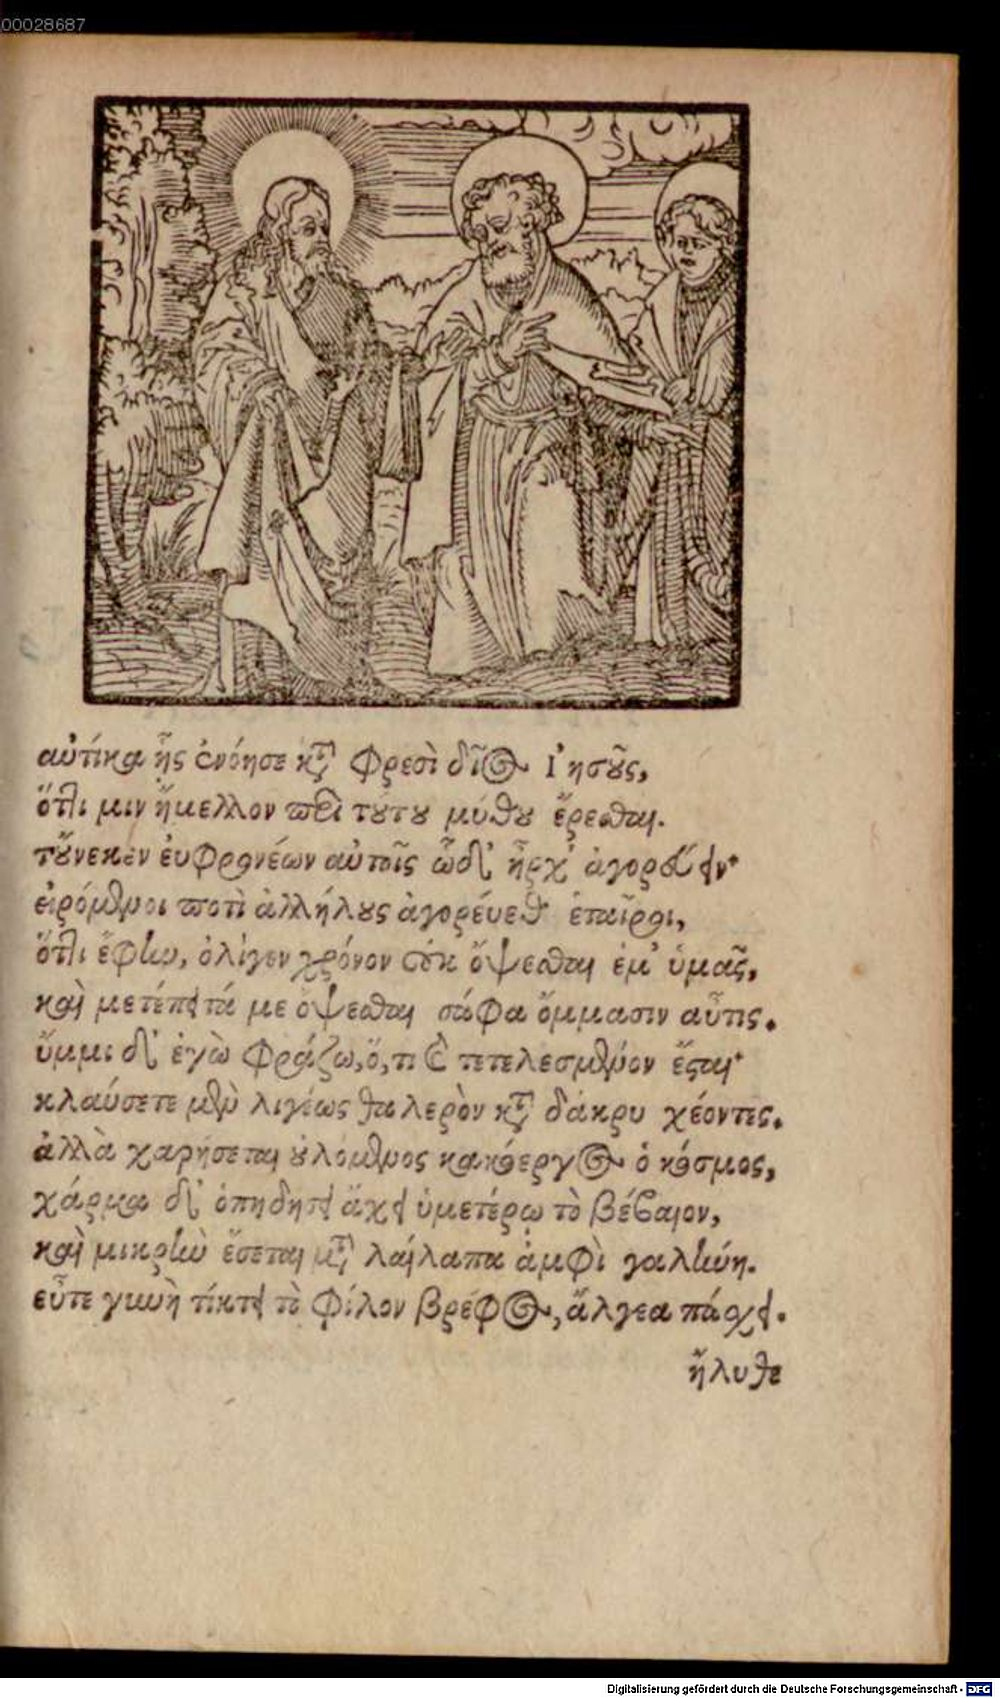 00028687
αὐτίκα ἧς ἐνόησε κατὰ φρεσὶ δῖος Ἰησοῦς,
ὅτι μιν ἤμελλον περὶ τούτου μύθου ἔρεσθαι.
τοὔνεκεν ἐυφρονέων αὐτοῖς ὧδ' ἦρχ' ἀγορεύειν·
εἰρόμενοι ποτὶ ἀλλήλους ἀγορεύεθ' ἑταῖροι,
ὅτι ἔφην, ὀλίγον χρόνον οὐκ ὄψεσθαι ἐμ' ὑμᾶς,
καὶ μετέπειτά με ὄψεσθαι σάφα ὄμμασιν αὖτις.
ὔμμι δ' ἐγὼ φράζω, ὅ, τι καὶ τετελεσμένον ἔσται·
κλαύσετε μὲν λιγέως θαλερὸν κατὰ δάκρυ χέοντες.
ἀλλὰ χαρήσεται οὐλόμενος κακόεργος ὁ κόσμος,
χάρμα δ' ὀπηδήσει ἄχει ὑμετέρῳ τὸ βέβαιον,
καὶ μικρὴν ἔσεται μετὰ λαίλαπα ἀμφὶ γαλήνη.
εὖτε γυνὴ τίκτει τὸ φίλον βρέφος, ἄλγεα πάσχει.
ἤλυθε
Digitalisierung gefördert durch die Deutsche Forschungsgemeinschaft - DFG